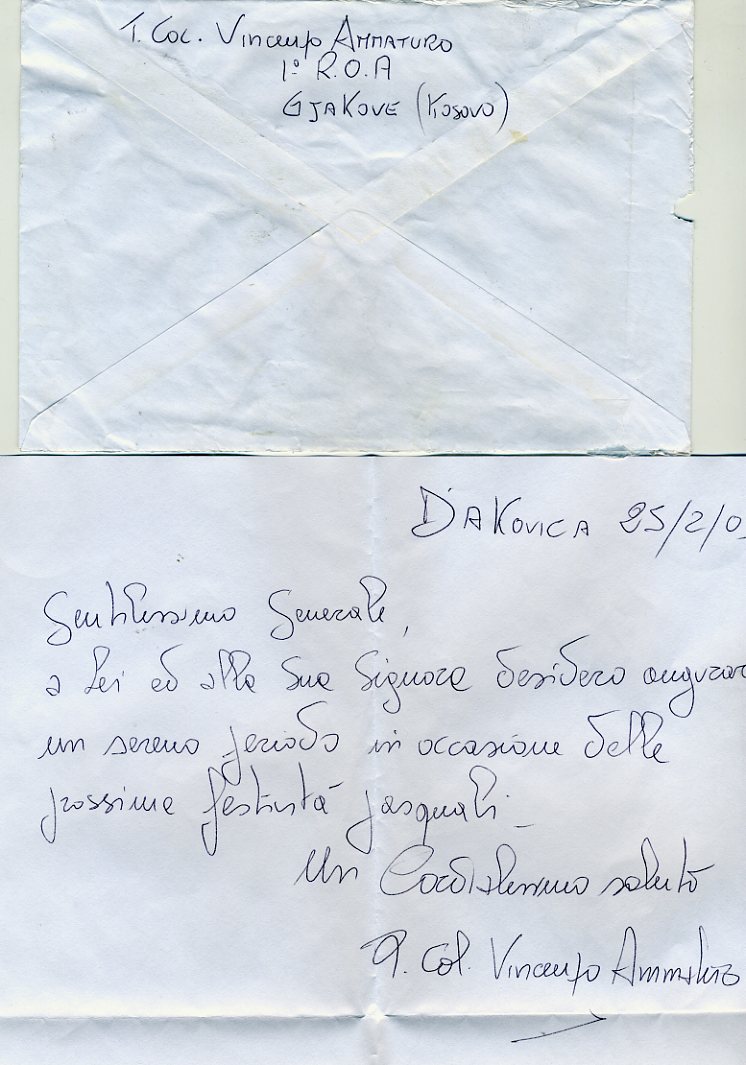 T. Col. Vincenzo Ammaturo
1° R.O.A
Gjakove (Kosovo)
D'akovica 25/2/0
Gentilissimo Generale,
a Lei ed alla Sua Signora desidero augurar
un sereno periodo in occasione delle
prossime festività pasquali_
Un Cordialissimo saluto
T. Col. Vincenzo Ammaturo